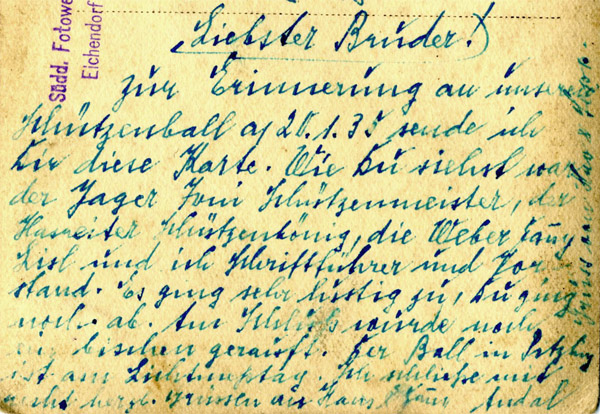 Südd. Fotowe
Eichendorf
Liebster Bruder!
zur Erinnerung an unsere
Schützenball a/ 20.1.35 sende ich
Dir diese Karte. Wie Du siehst war
der Jager Toni Schützenmeister, der
Hasreiter Schützenkönig, die Weber Fany
Lisl und ich Schriftführer und Vor
stand. Es ging sehr lustig zu, Du gingst
noch ab. Am Schluß wurde noch
ein bischen gerauft. Der Ball in
ist am Lichtmeßtag. Ich schließe mit
recht herzl. Grüssen aus Haus